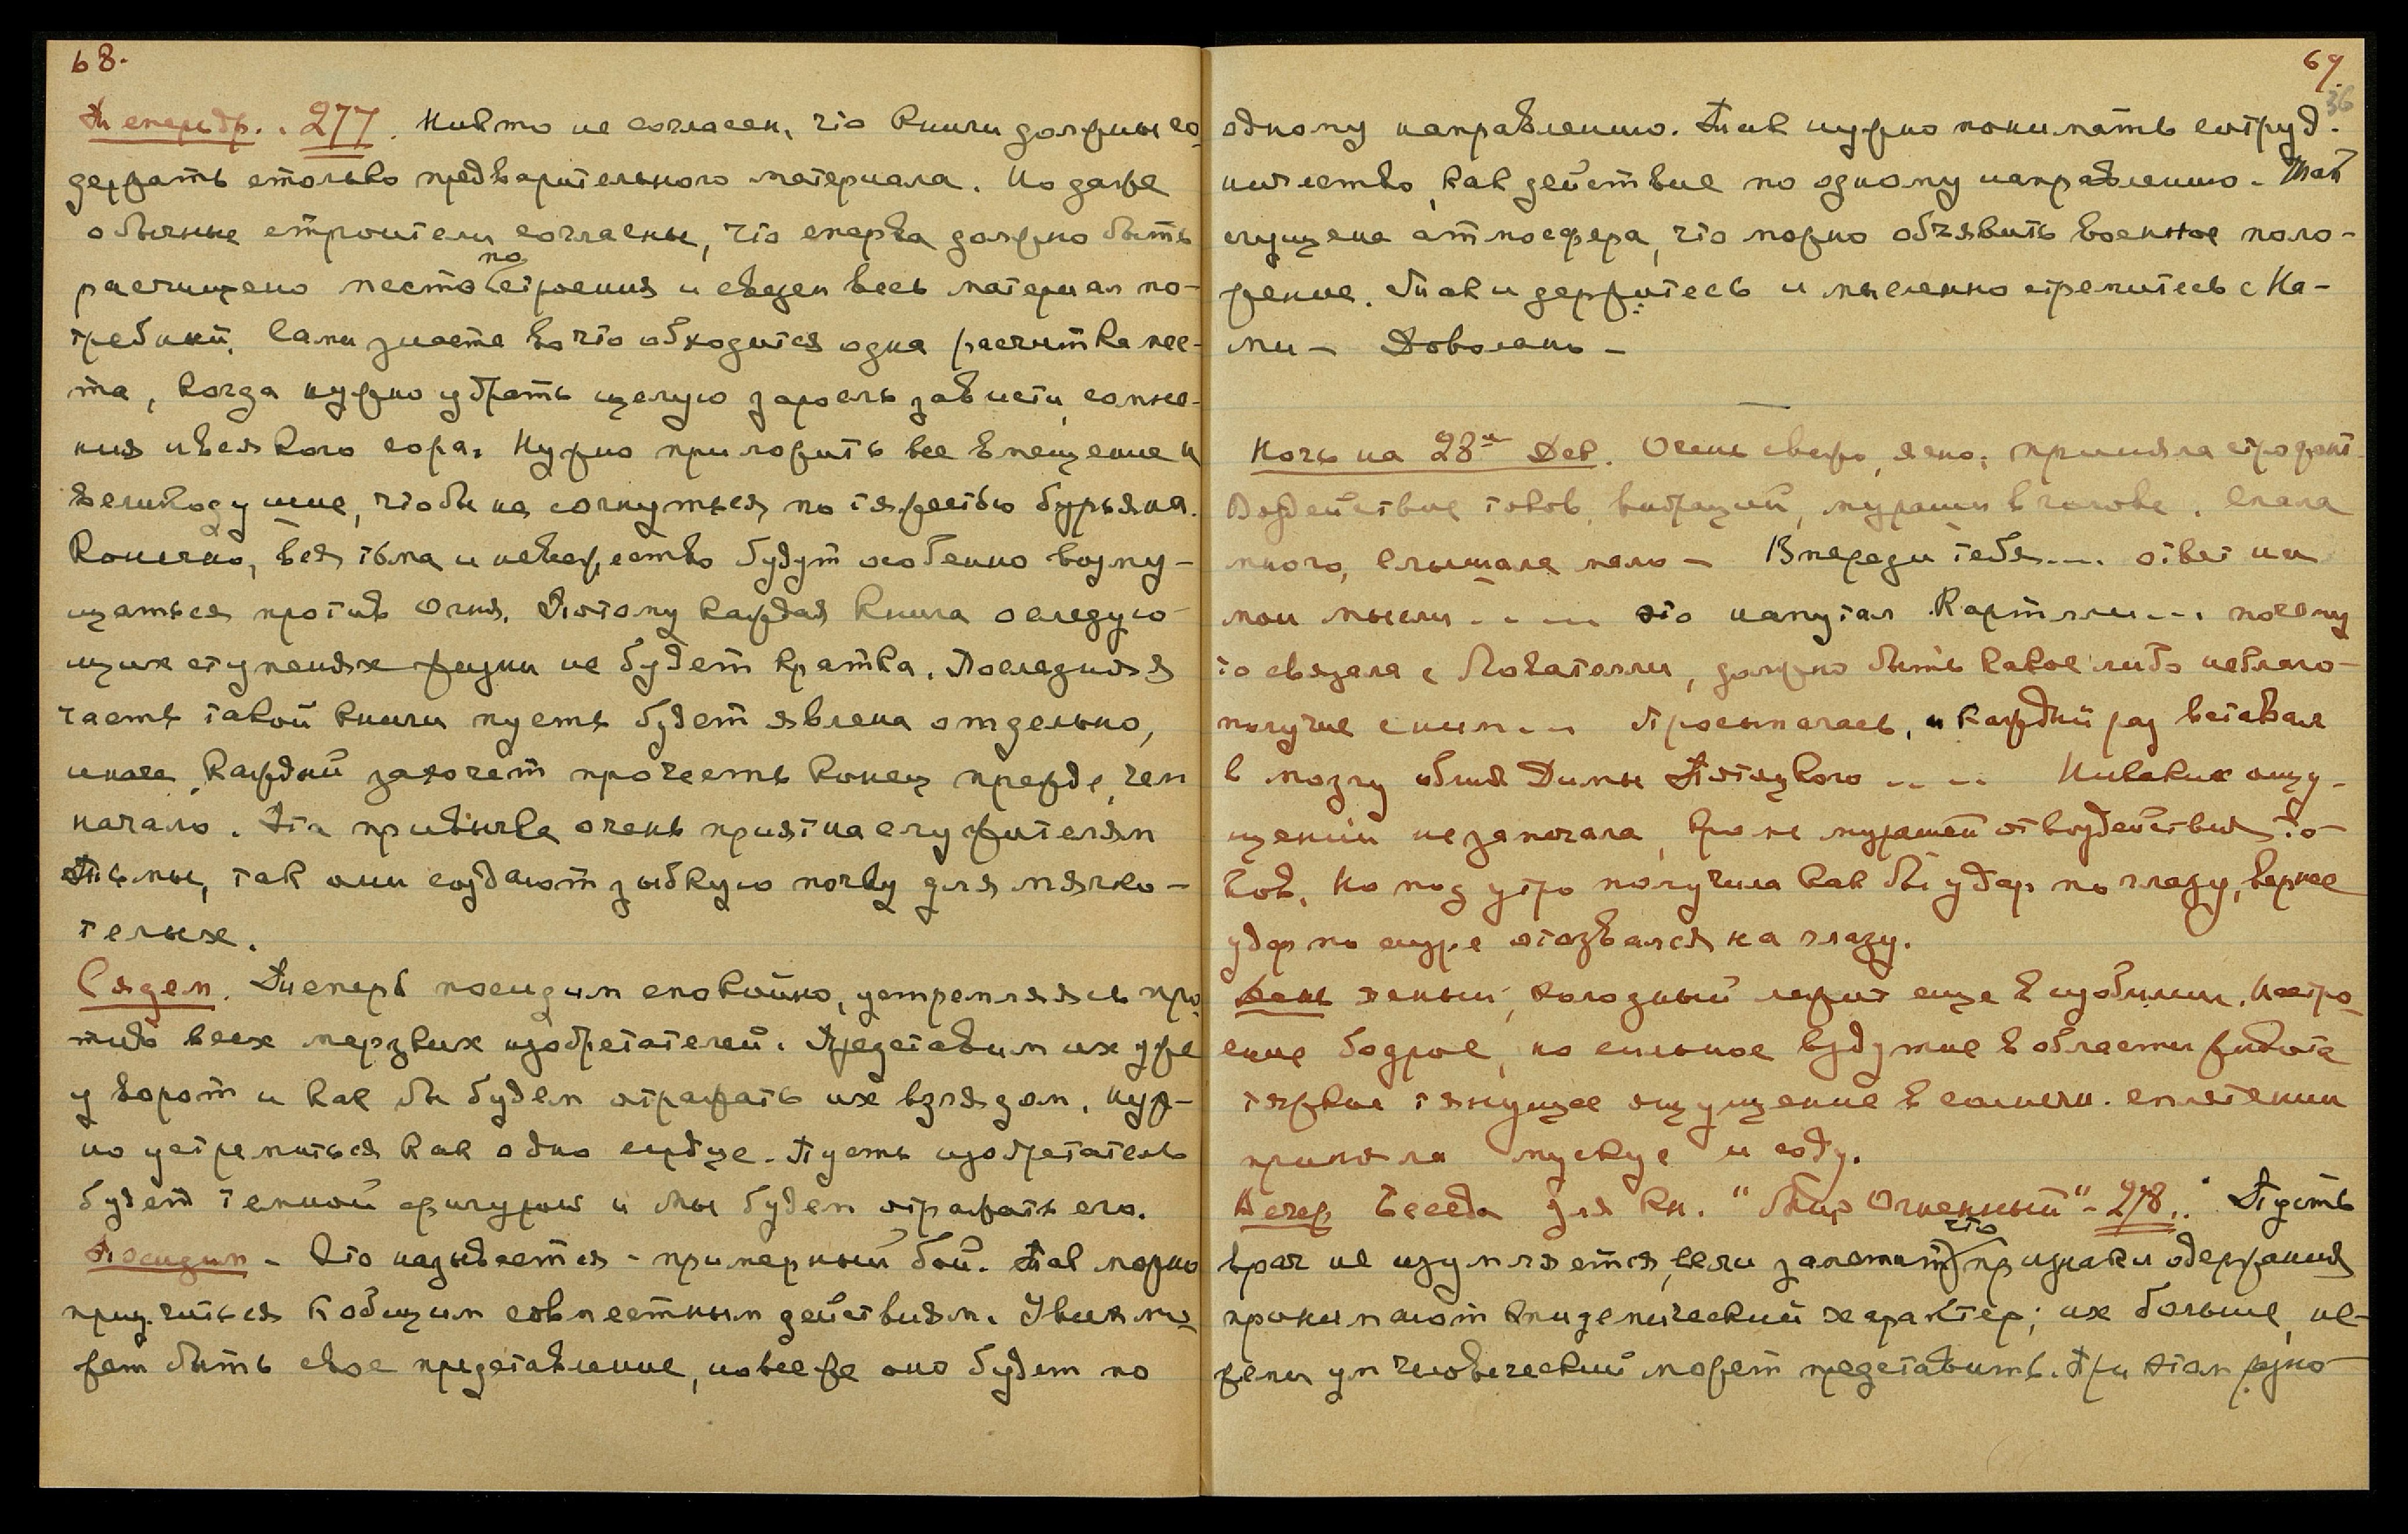 68.
Теперь др.. 277. Никто не согласен, что книги должны со-
держать столько предварительного материала. Но даже
обычные строители согласны, что сперва должно быть
расчищено место по строения и свезен весь материал по-
требный. Сами знаете во что обходится одна расчистка мес-
та, когда нужно убрать целую заросль зависти, сомне-
ния и всякого сора. Нужно приложить все вмещение и
великодушие, чтобы не согнуться по тяжестью бурьяна.
Конечно, вся тьма и невежество будут особенно возму-
щаться против Огня. Потому каждая книга о следую-
щих ступенях жизни не будет кратка. Последняя
часть такой книги пусть будет явлена отдельно,
иначе, каждый захочет прочесть конец прежде, чем
начало. Эта привычка очень приятна служителям
Тьмы, так они создают зыбкую почву для мягко-
телых.
Сядем. Теперь посидим спокойно, устремляясь про-
тив всех мерзких изобретателей. Представим их уже
у ворот и как бы будем отражать их взглядом, нуж-
но устремиться как одно сердце. Пусть изобретатель
будет темной фигурой и Мы будем отражать его.
Посидим - Это называется - примерный бой. Так можно
приучиться к общим совместным действиям. У всех мо-
жет быть свое представление, но все же оно будет по
69.
36
одному направлению. Так нужно понимать сотруд-
ничество, как действие по одному направлению. Так
сгущена атмосфера, что можно объявить военное поло-
жение. Так и держитесь и мысленно стремитесь с На-
ми - Довольно -
Ночь на 28ое Дек. Очень свежо, ясно; приняла строфант.
Воздействие токов, вибраций, мураши в голове. Спала
много, слышала мало - Впереди тебя.... ответ на
мои мысли ..... это напутал ... почему
то связала с ..., должно быть какое либо неблаго-
получие с ним... Просыпалась, и каждый раз вставал
в мозгу облик Димы ..... Никаких ощу-
щений не запомнала, кроме мурашей от воздействия то-
ков. Но под утро получила как бы удар по глазу, вернее
удар по ауре отозвался на глазу.
День ясный, холодный лежит еще в изобилии. Настро-
ение бодрое, но сильное вздутие в области живота
тяжкое тянущее ощущение в солнечн. сплетении
приняла мускус и соду.
Вечер Беседа для кн. "Мир Огненный" - 278.. Пусть
врач не изумляется, если заметит, что признаки одержания
принимают эпидемический характер; их больше, не-
жели ум человеческий может представить. При этом разно-